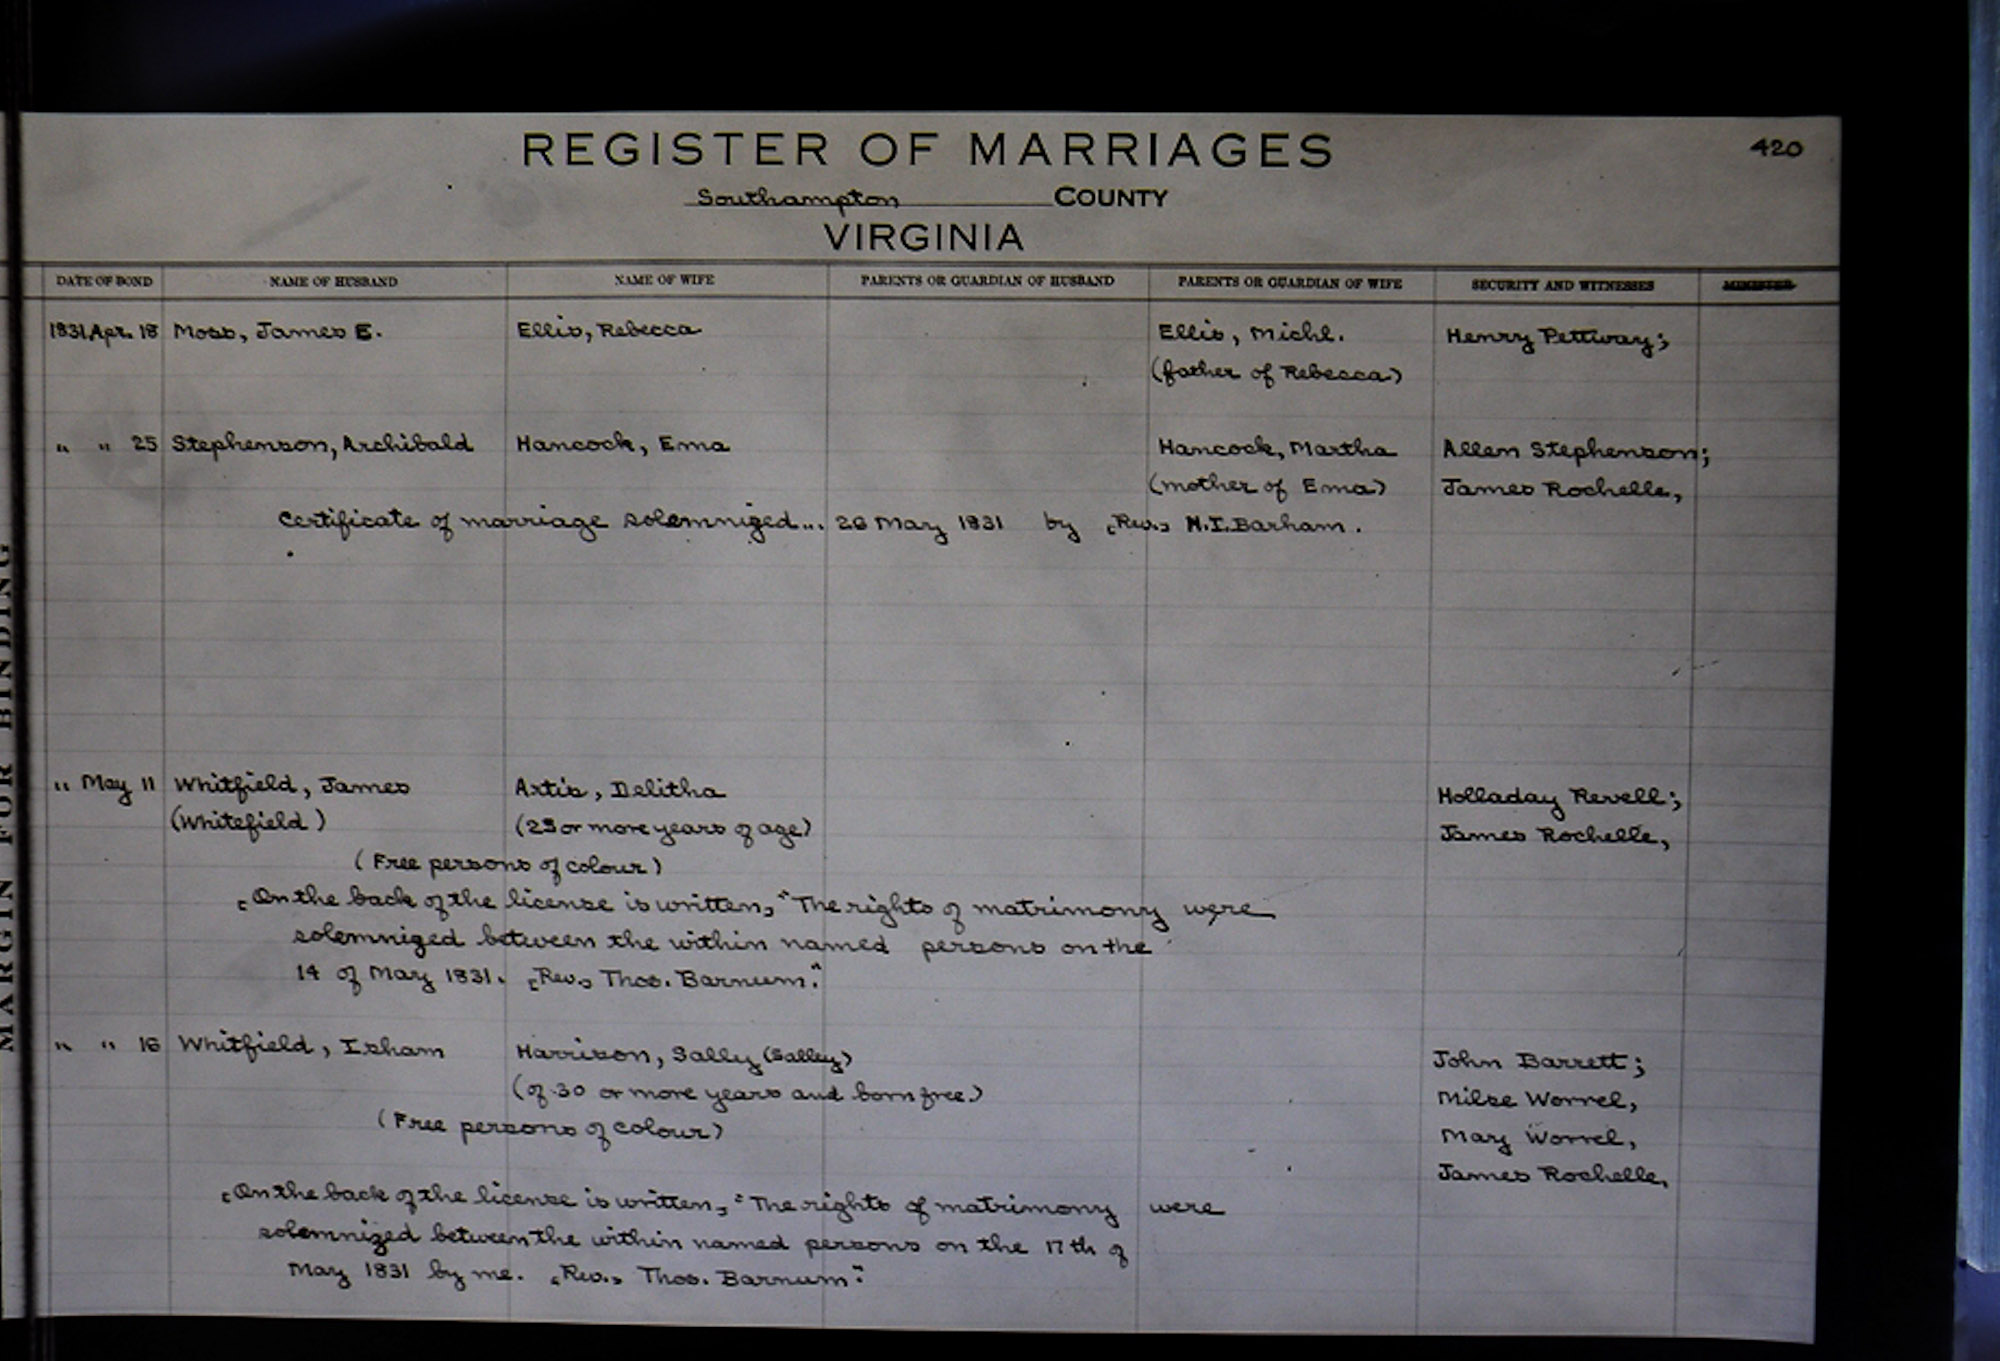 REGISTER OF MARRIAGES 420
Southampton COUNTY
VIRGINIA
DATE OF BOND NAME OF HUSBAND NAME OF WIFE PARENTS OR GUARDIAN OF HUSBAND PARENTS OR GUARDIAN OF WIFE SECURITY AND WITNESSES MINISTER
1831 Apr. 18 Moss, James E. Ellis, Rebecca Ellis, Michl. Henry Pettway;
(father of Rebecca)
" " 25 Stephenson, Archibald Hancock, Ema Hancock, Martha Allen Stephenson;
(mother of Ema) James Rochelle,
Certificate of marriage solemnized... 26 May 1831 by [Rev.] H.I. Barham.
" May 11 Whitfield, James Artis, Delitha Holladay Revell;
(Whitefield) (23 or more years of age) James Rochelle,
(Free persons of colour)
[On the back of the license is written,] "The rights of matrimony were
solemnized between the within named persons on the
14 of May 1831. [Rev.] Thos. Barnum."
" " 16 Whitfield, Isham Harrison, Sally (Salley) John Barrett;
(of 30 or more years and born free.) Milse Worrel,
(Free persons of colour) Mary Worrel,
James Rochelle,
[On the back of the license is written,] "The rights of matrimony were
solemnized between the within named persons on the 17th of
May 1831 by me. [Rev.] Thos. Barnum."
MARGIN FOR BINDING